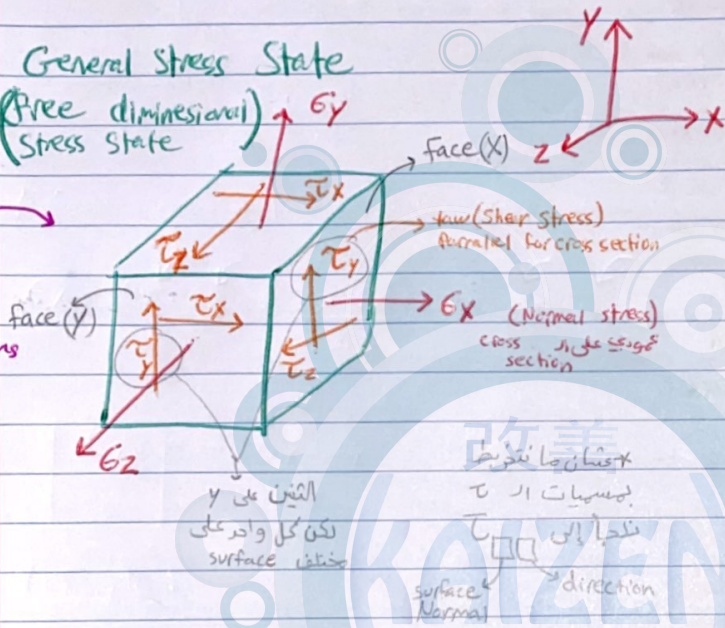 General Stress State
(Free diminesional)
(Stress State)
Y
X
Z
σy
face(X)
τx
τz
taw (Shear Stress)
Parralel for cross section
τy
face (y)
τx
σx (Normal stress)
عمودي على الـ cross
section
τy
τz
σz
الثنين على y
لكن كل واحد على
مختلف surface
* عشان ما نتخربط
بمسميات الـ τ
نلجأ إلى τ
surface
Normal
direction
改善
KAIZEN